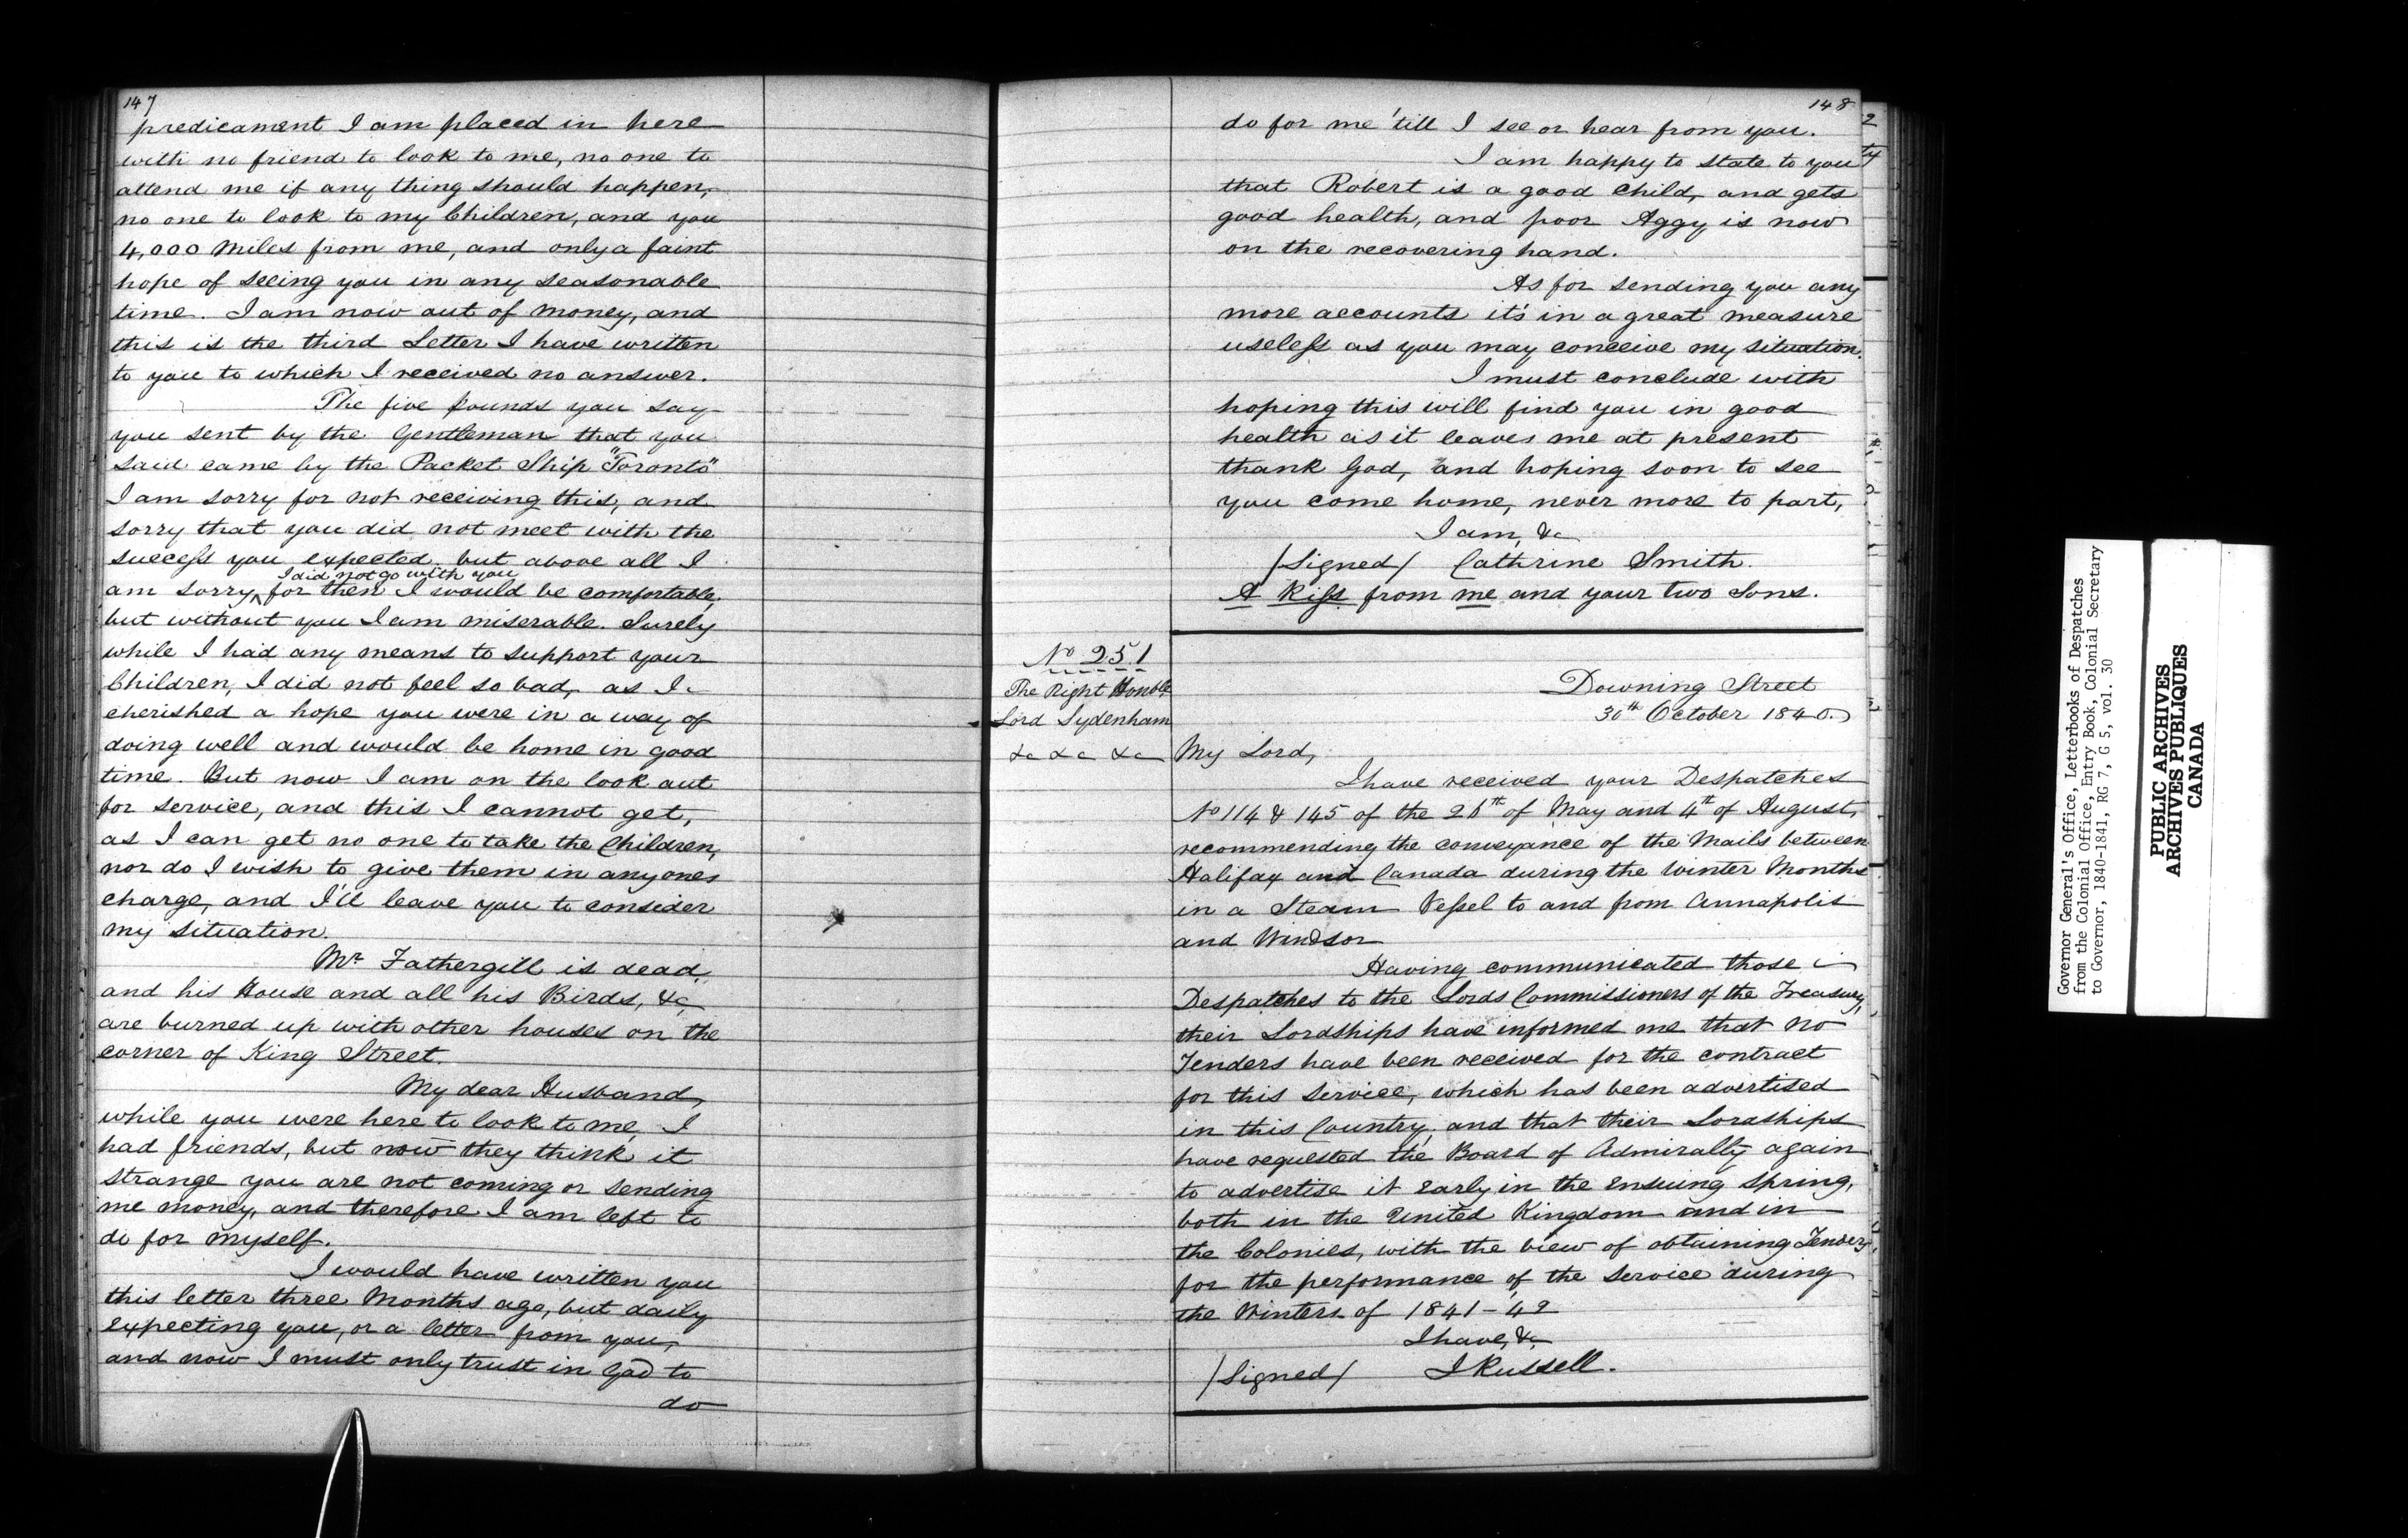 147
predicament I am placed in here
with no friend to look to me, no one to
attend me if any thing should happen,
no one to look to my Children, and you
4,000 Miles from me, and only a faint
hope of seeing you in any seasonable
time. I am now out of money, and
this is the third Letter I have written
to you to which I received no answer.
The five pounds you say
you sent by the Gentleman that you
said came by the Packet Ship "Toronto"
I am sorry for not receiving this, and
sorry that you did not meet with the
success you expected but above all I
I did not go with you
am sorry, for then I would be comfortable,
but without you I am miserable. Surely
while I had any means to support your
Children, I did not feel so bad, as I
cherished a hope you were in a way of
doing well and would be home in good
time. But now I am on the look out
for service, and this I cannot get,
as I can get no one to take the Children,
nor do I wish to give them in any ones
charge, and I'll leave you to consider
my situation.
Mr. Fathergill is dead
and his House and all his Birds, &c,
are burned up with other houses on the
corner of King Street.
My dear Husband,
while you were here to look to me, I
had friends, but now they think it
strange you are not coming or sending
me money, and therefore I am left to
do for myself.
I would have written you
this letter three Months ago, but daily
expecting you, or a letter from you,
and now I must only trust in God to
do
148
do for me 'till I see or hear from you.
I am happy to state to you
that Robert is a good child, and gets
good health, and poor Aggy is now
on the recovering hand.
As for sending you any
more accounts it's in a great measure
useless as you may conceive my situation.
I must conclude with
hoping this will find you in good
health as it leaves me at present
thank God, and hoping soon to see
you come home, never more to part,
I am, &c
/Signed/ Cathrine Smith.
A Kiss from me and your two Sons.
No 251
The Right Honble
Lord Sydenham
&c &c &c
Downing Street
30th October 1840.
My Lord,
I have received your Despatches
No 114 & 145 of the 26th of May and 4th of August,
recommending the conveyance of the Mails between
Halifax and Canada during the Winter Months
in a Steam Vessel to and from Annapolis
and Windsor
Having communicated those
Despatches to the Lords Commissioners of the Treasury,
their Lordships have informed me that no
Tenders have been received for the contract
for this Service, which has been advertised
in this Country, and that their Lordships
have requested the Board of Admiralty again
to advertise it early in the ensuing Spring,
both in the United Kingdom and in
the Colonies, with the view of obtaining Tenders
for the performance of the Service during
the Winters of 1841-42
I have, &c
/Signed/ J Russell.
Governor General's Office, Letterbooks of Despatches
from the Colonial Office, Entry Book, Colonial Secretary
to Governor, 1840-1841, RG 7, G 5, vol. 30
PUBLIC ARCHIVES
ARCHIVES PUBLIQUES
CANADA